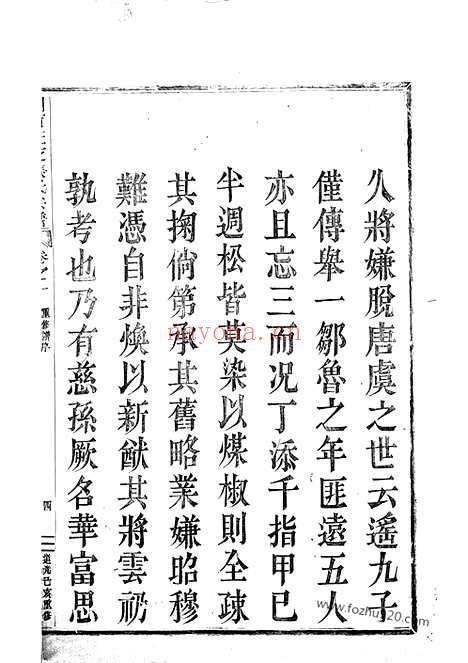 久將嫌脫唐虞之世云遙九子
僅傳舉一鄒魯之年匪遠五人
亦且忘三而况丁添千指甲已
半週松皆莫染以煤椒則全疎
其掬倘第承其舊略業嫌昭穆
難憑自非煥以新猷其將雲礽
孰考也乃有慈孫厥名華富思
卷之一
重修譜序
四
道光己亥重修
nayona.cn
www.fozhu920.com